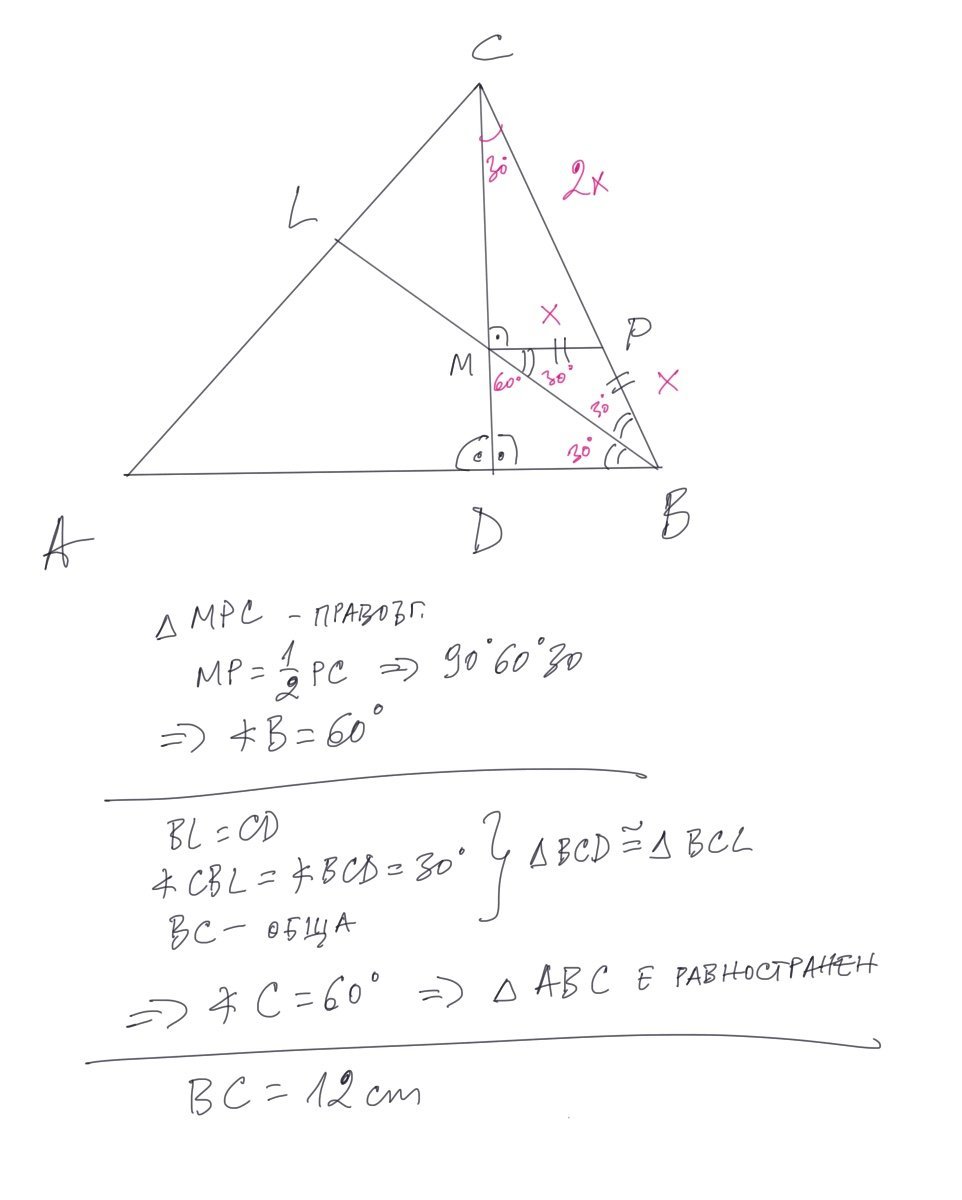 C
30°
2x
L
x
P
M
60°
30°
x
30°
30°
A
D
B
△ MPC - ПРАВОЪГ.
MP = 1/2 PC => 90° 60° 30
=> ∢B = 60°
BL = CD
∢CBL = ∢BCD = 30° } △BCD ≅ △BCL
BC - ОБЩА
=> ∢C = 60° => △ ABC Е РАВНОСТРАНЕН
BC = 12 cm